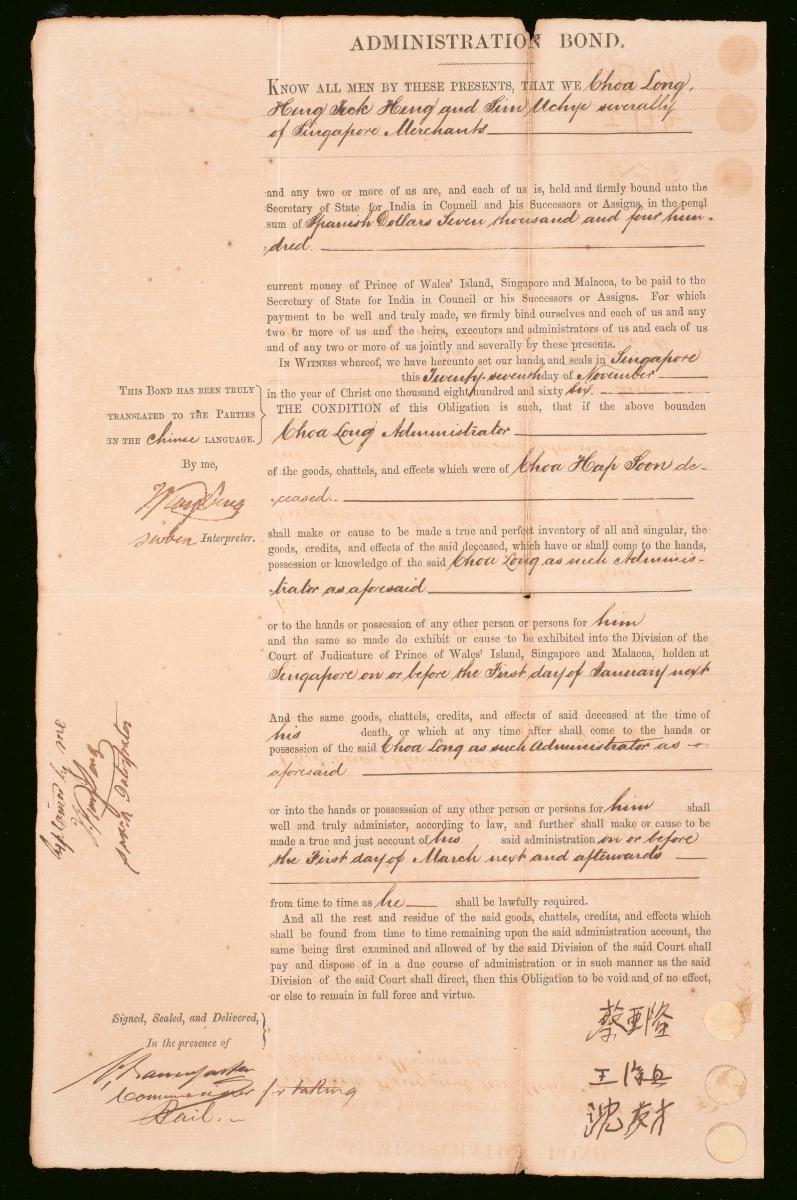 ADMINISTRATION BOND.
KNOW ALL MEN BY THESE PRESENTS, THAT WE Choa Long,
Heng Teck Heng and Sim Uchye severally
of Singapore Merchants
and any two or more of us are, and each of us is, held and firmly bound unto the
Secretary of State for India in Council and his Successors or Assigns, in the penal
sum of Spanish Dollars Seven thousand and four hun-
dred.
current money of Prince of Wales' Island, Singapore and Malacca, to be paid to the
Secretary of State for India in Council or his Successors or Assigns. For which
payment to be well and truly made, we firmly bind ourselves and each of us and any
two or more of us and the heirs, executors and administrators of us and each of us
and of any two or more of us jointly and severally by these presents.
IN WITNESS whereof, we have hereunto set our hands and seals in Singapore
this Twenty-seventh day of November
in the year of Christ one thousand eight hundred and sixty six.
THE CONDITION of this Obligation is such, that if the above bounden
Choa Long Administrator
of the goods, chattels, and effects which were of Choa Hap Soon de-
ceased.
shall make or cause to be made a true and perfect inventory of all and singular, the
goods, credits, and effects of the said deceased, which have or shall come to the hands,
possession or knowledge of the said Choa Long as such Adminis-
trator as aforesaid
or to the hands or possession of any other person or persons for him
and the same so made do exhibit or cause to be exhibited into the Division of the
Court of Judicature of Prince of Wales' Island, Singapore and Malacca, holden at
Singapore on or before the First day of January next
And the same goods, chattels, credits, and effects of said deceased at the time of
his death, or which at any time after shall come to the hands or
possession of the said Choa Long as such Administrator as
aforesaid
or into the hands or possesssion of any other person or persons for him shall
well and truly administer, according to law, and further shall make or cause to be
made a true and just account of his said administration on or before
the First day of March next and afterwards
from time to time as he shall be lawfully required.
And all the rest and residue of the said goods, chattels, credits, and effects which
shall be found from time to time remaining upon the said administration account, the
same being first examined and allowed of by the said Division of the said Court shall
pay and dispose of in a due course of administration or in such manner as the said
Division of the said Court shall direct, then this Obligation to be void and of no effect,
or else to remain in full force and virtue.
THIS BOND HAS BEEN TRULY
TRANSLATED TO THE PARTIES
IN THE Chinese LANGUAGE.
By me,
Sworn Interpreter.
Explained by me
Sworn Interpreter
Signed, Sealed, and Delivered,
In the presence of
Commissioner for taking
Bail.
蔡亞隆
王
沈